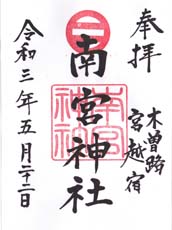 奉拝
木曽路
宮越宿
南宮神社
南宮
神社
令和三年五月二十二日